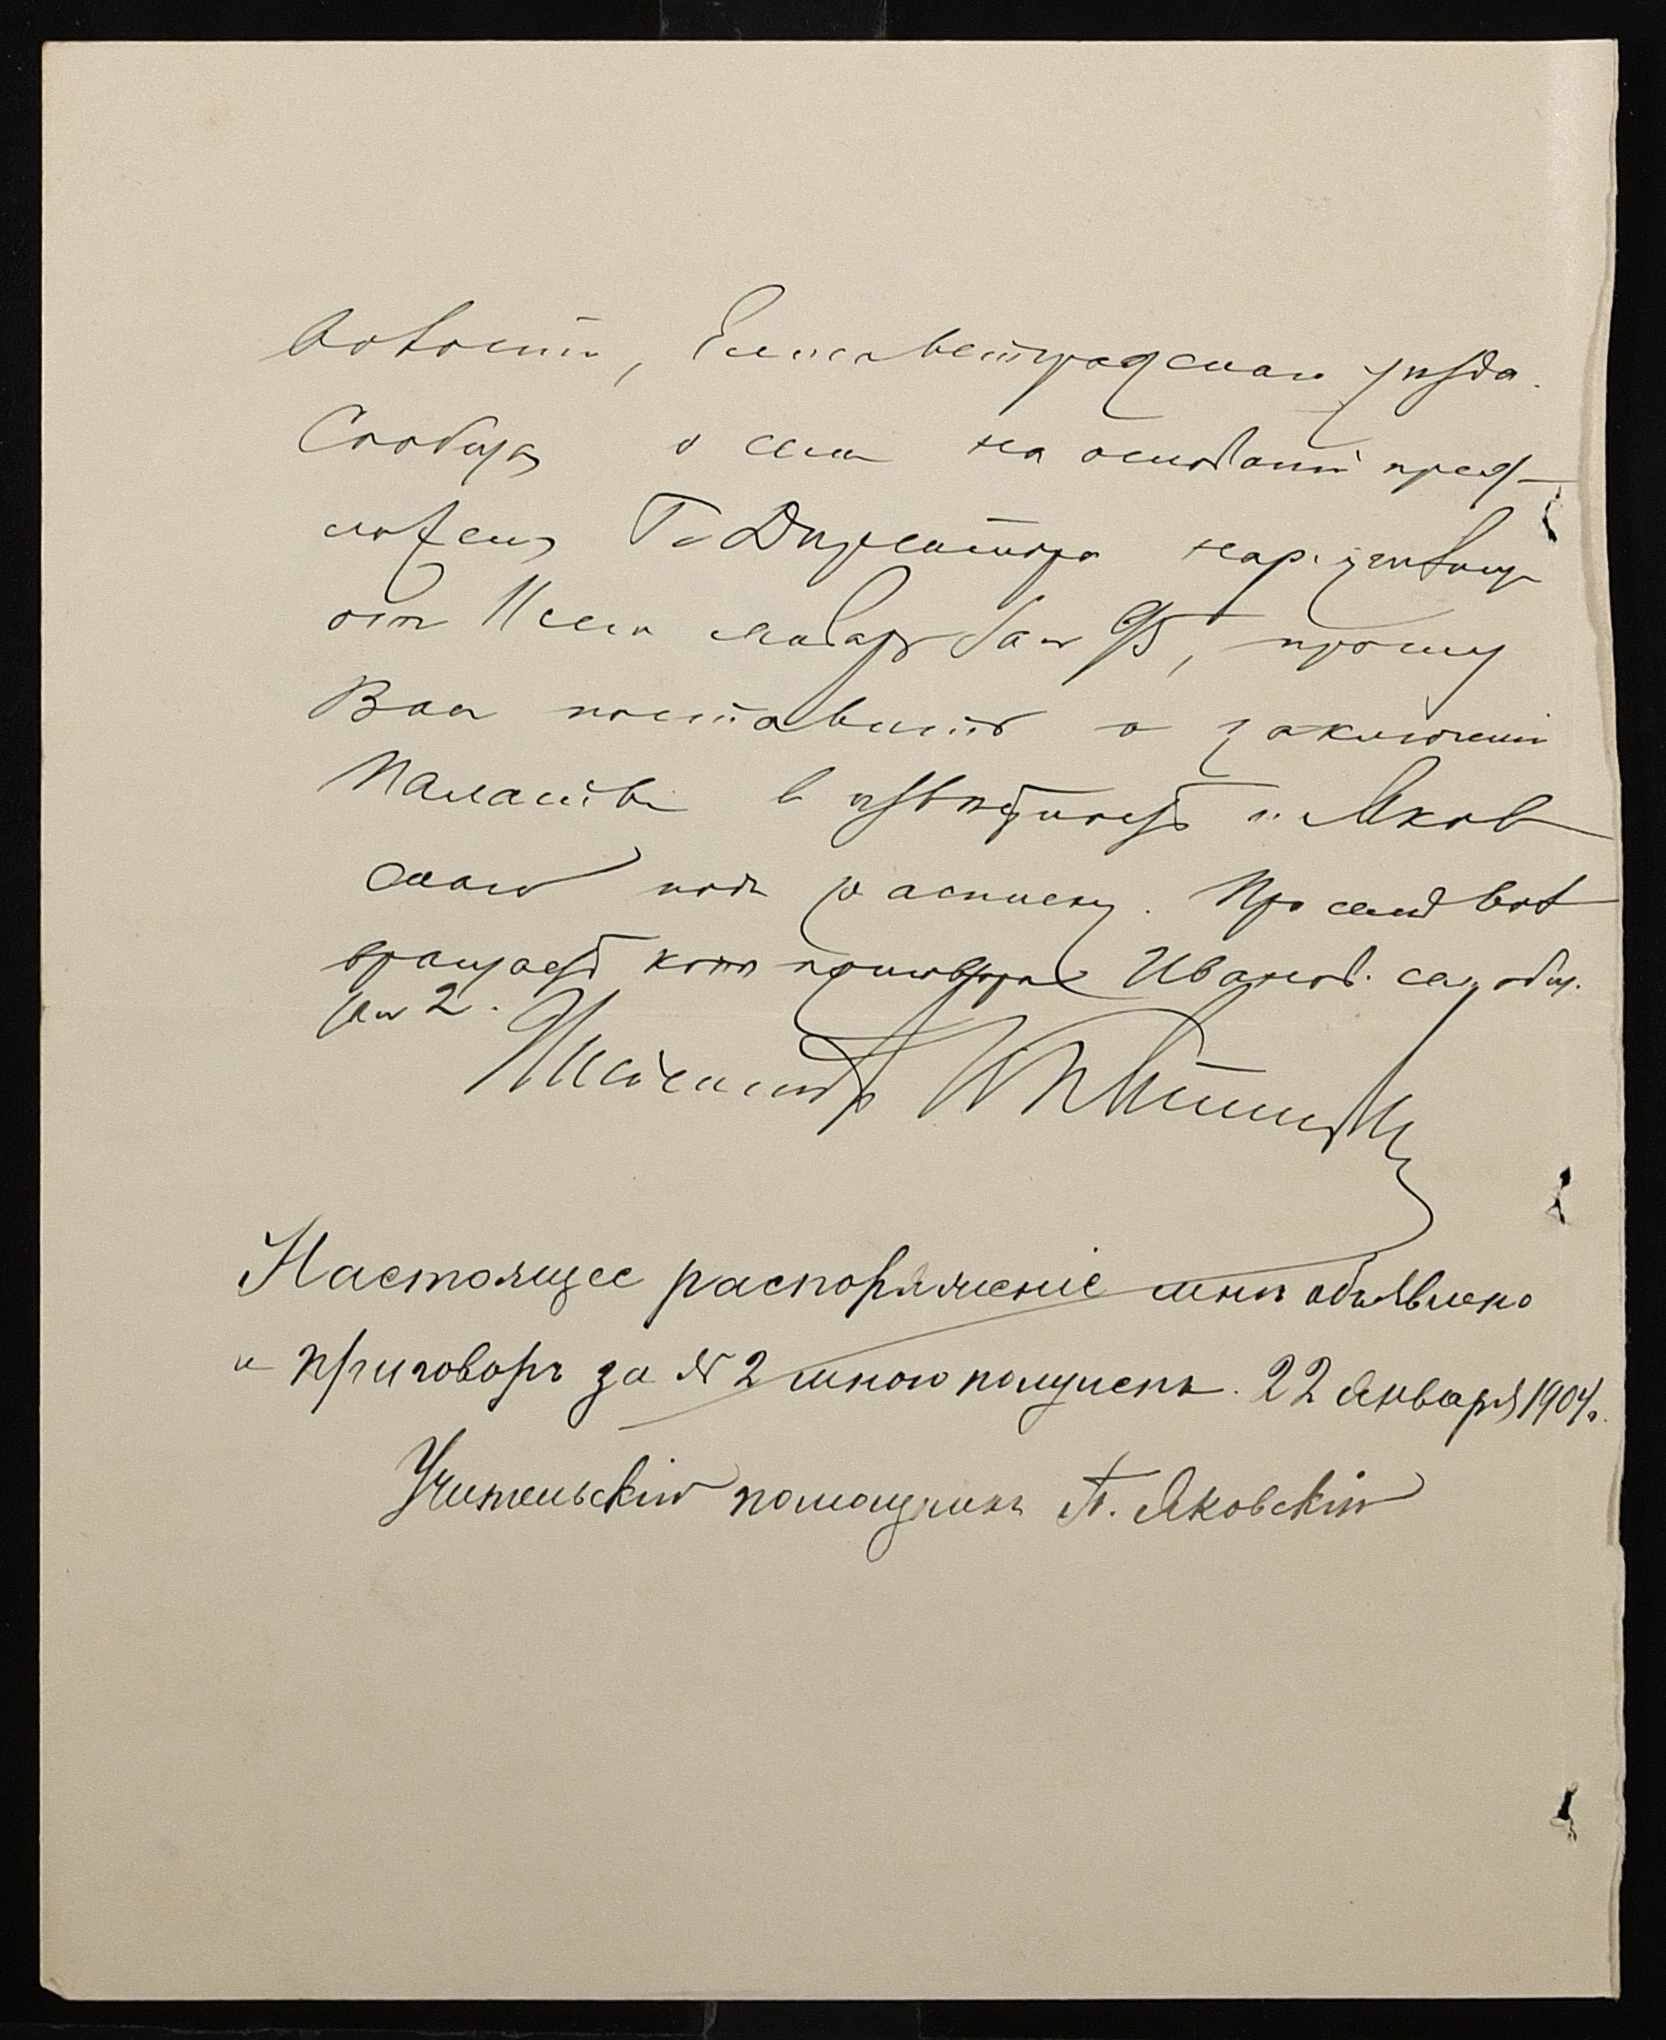 волости, Елисаветградскаго уѣзда.
Сообщая о семъ на основаніи пред-
ложенія Г. Директора нар. училищ
отъ 11 сего января за №, прошу
Васъ поставить о заключеніи
Палаты въ извѣстность г. Яков
скаго подъ расписку. При семъ воз
вращается копія приговора Иванов. сел. общ.
за № 2.
Инспекторъ
Настоящее распоряженіе мнѣ объявлено
и приговоръ за № 2 мною полученъ. 22 Января 1904 г.
Учительскій помощникъ П. Яковскій